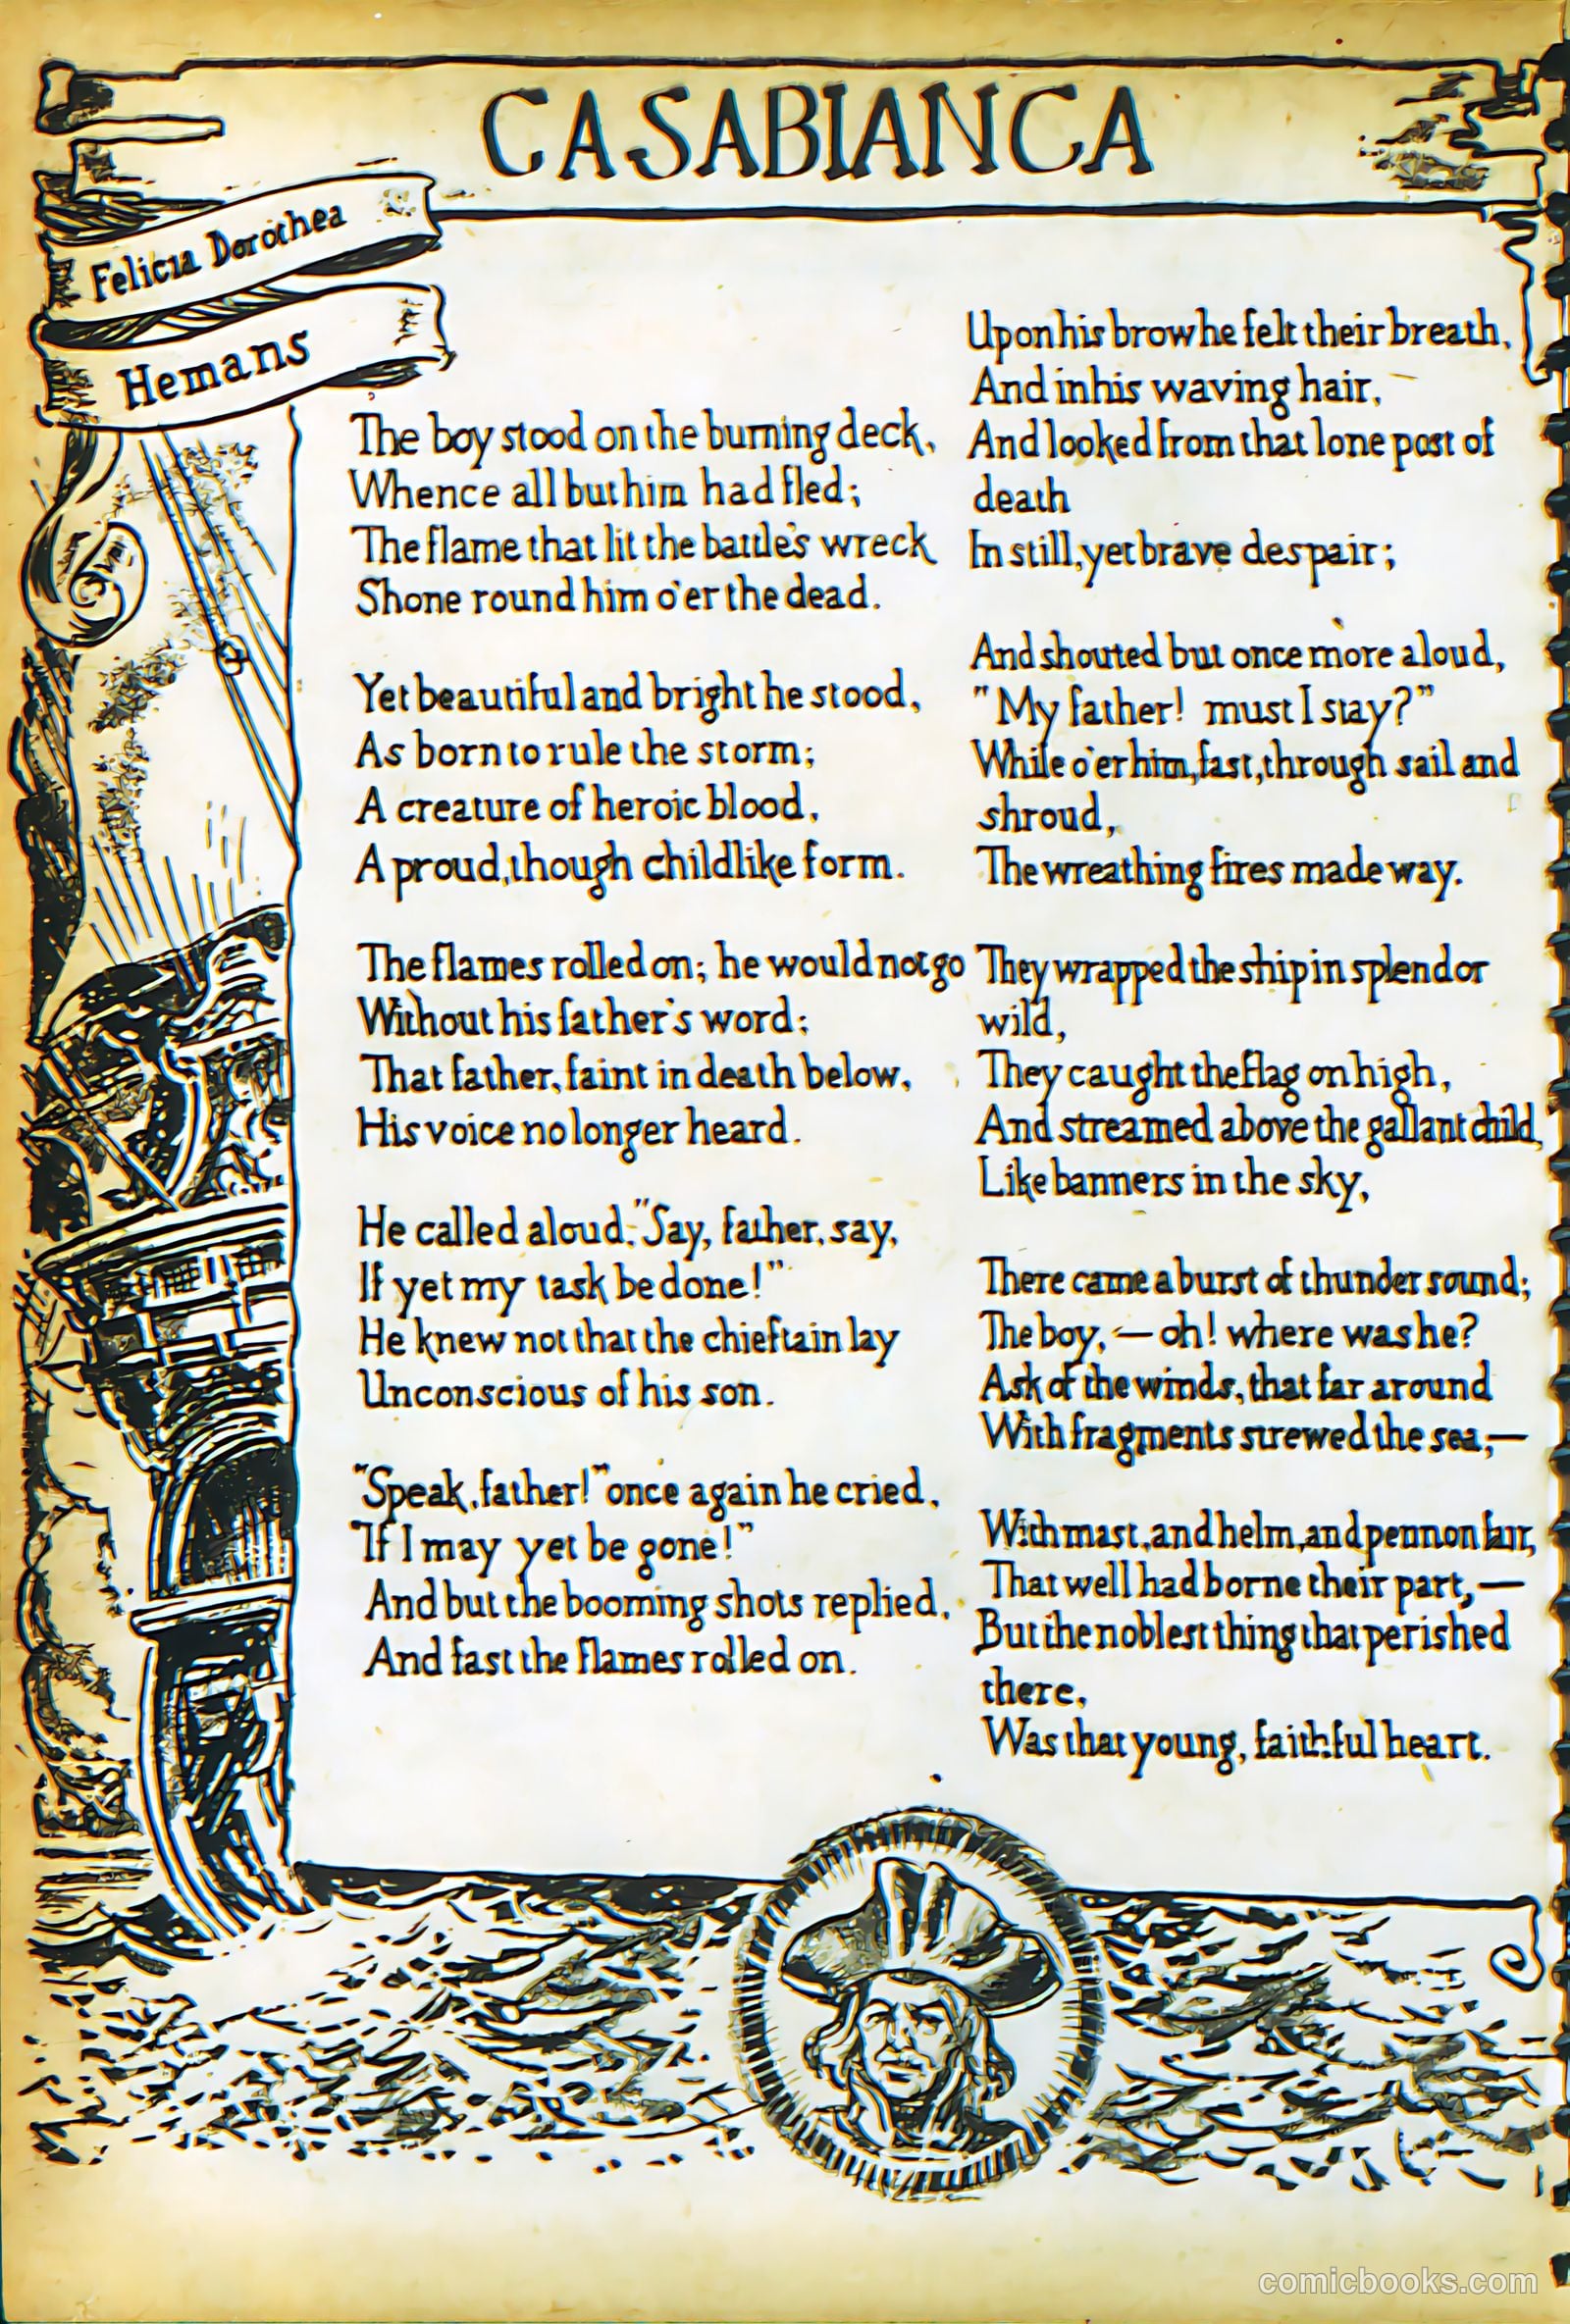 CASABIANCA
Felicia Dorothea
Hemans
The boy stood on the burning deck,
Whence all but him had fled;
The flame that lit the battle's wreck
Shone round him o'er the dead.
Yet beautiful and bright he stood,
As born to rule the storm;
A creature of heroic blood,
A proud, though childlike form.
The flames rolled on; he would not go
Without his father's word;
That father, faint in death below,
His voice no longer heard.
He called aloud:"Say, father, say,
If yet my task be done!"
He knew not that the chieftain lay
Unconscious of his son.
"Speak, father!" once again he cried,
"If I may yet be gone!"
And but the booming shots replied,
And fast the flames rolled on.
Upon his brow he felt their breath,
And in his waving hair,
And looked from that lone post of
death
In still, yet brave despair;
And shouted but once more aloud,
"My father! must I stay?"
While o'er him, fast, through sail and
shroud,
The wreathing fires made way.
They wrapped the ship in splendor
wild,
They caught the flag on high,
And streamed above the gallant child,
Like banners in the sky,
There came a burst of thunder sound;
The boy, — oh! where was he?
Ask of the winds, that far around
With fragments strewed the sea,—
With mast, and helm, and pennon fair,
That well had borne their part,—
But the noblest thing that perished
there,
Was that young, faithful heart.
comicbooks.com